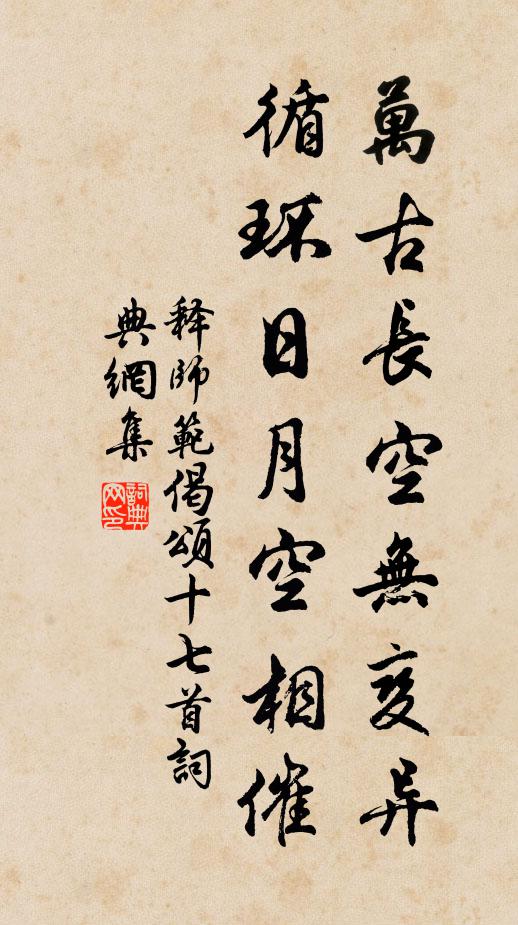 萬古長空無変异
循环日月空相催
释師範偈頌十七首詞
典網集
詞典网印